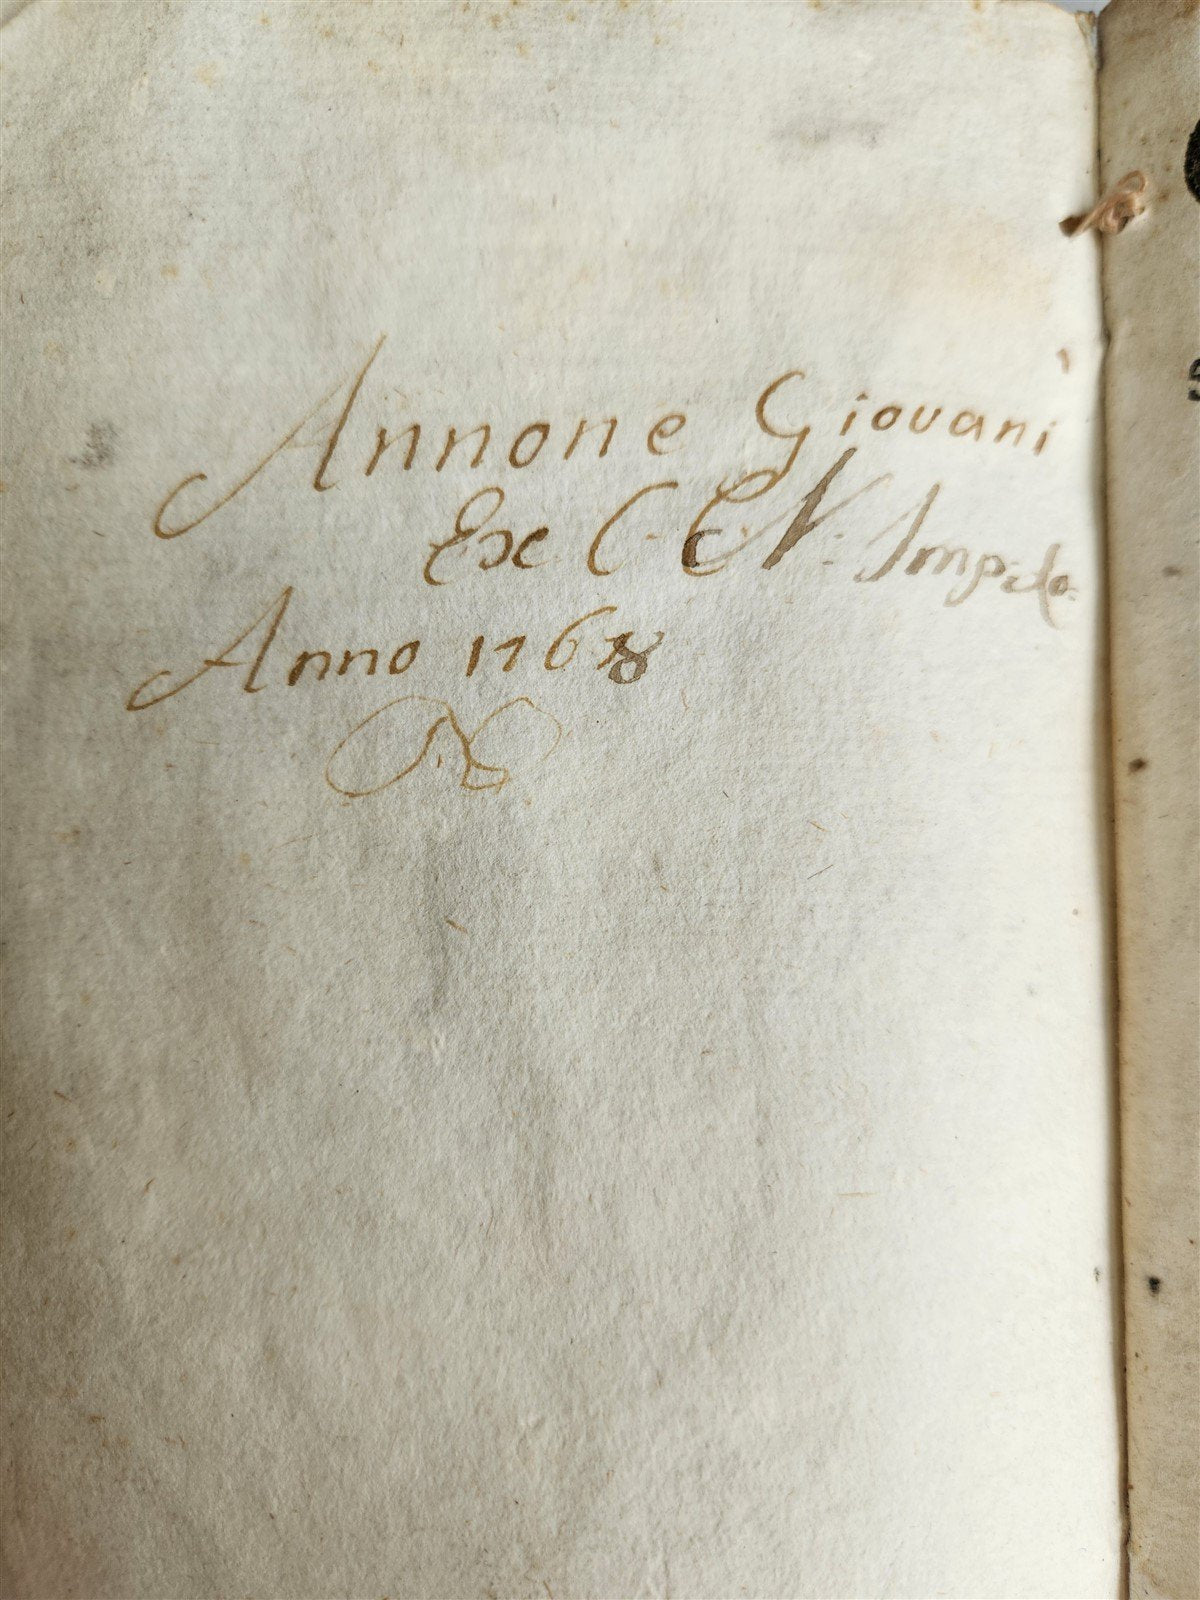 Annone Giovani
Ex C. C. N. Imp:
Anno 1768